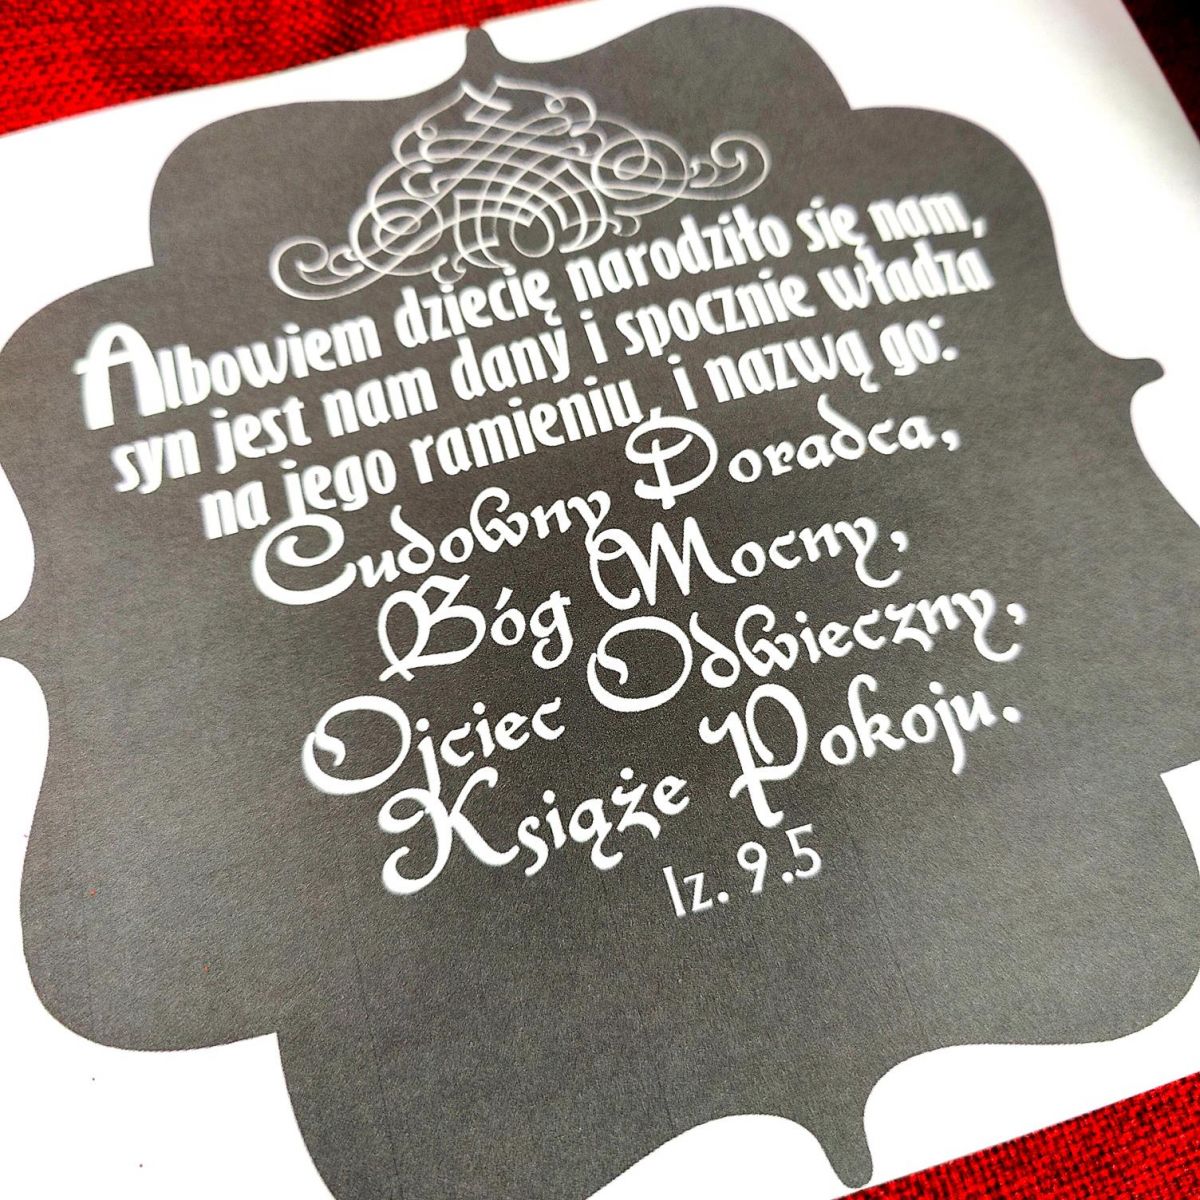 Albowiem dziecię narodziło się nam,
syn jest nam dany i spocznie władza
na jego ramieniu, i nazwą go:
Cudowny Doradca,
Bóg Mocny,
Ojciec Odwieczny,
Książe Pokoju.
Iz. 9.5